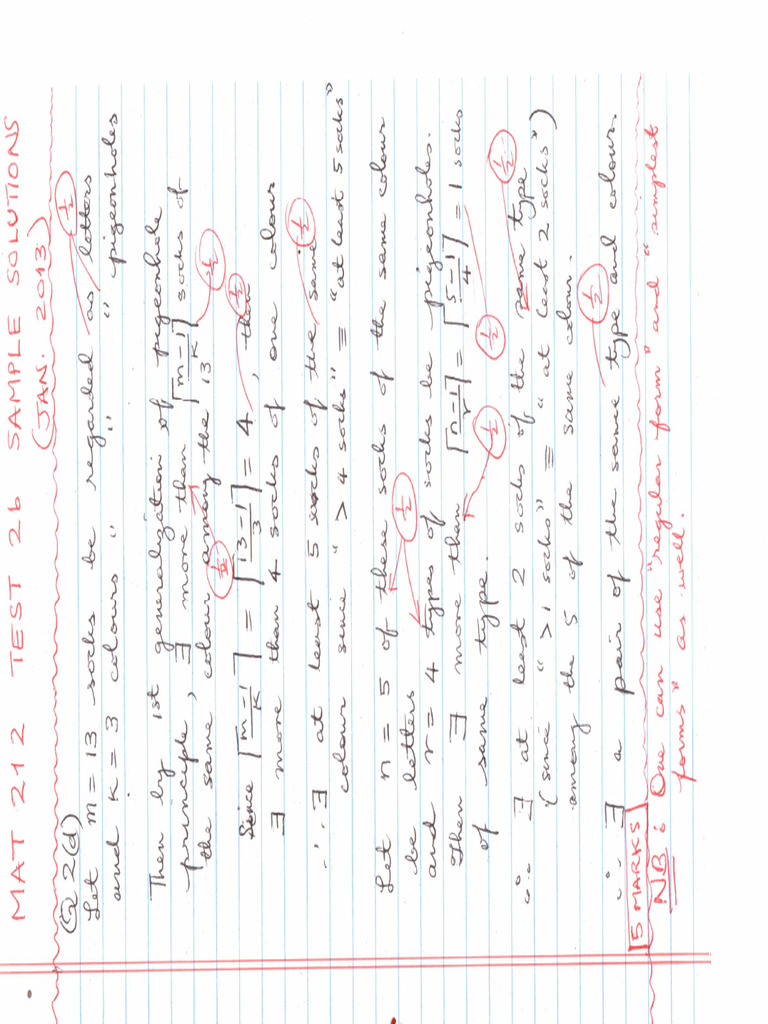 MAT 212 TEST 2b SAMPLE SOLUTIONS
(JAN. 2013)
Q 2(d)
Let m = 13 socks be regarded as letters ½
and K = 3 colours " " " pigeonholes
Then by 1st generalization of pigeonhole
principle, ∃ more than ⌈(m-1)/K⌉ socks of ½
the same colour among the 13 ½
Since ⌈(m-1)/K⌉ = ⌈(13-1)/3⌉ = 4, then ½
∃ more than 4 socks of one colour
∴ ∃ at least 5 socks of the same ½
colour since "> 4 socks" ≡ "at least 5 socks"
Let n = 5 of these socks of the same colour
be letters ½
and r = 4 types of socks be pigeonholes.
Then ∃ more than ⌈(n-1)/r⌉ = ⌈(5-1)/4⌉ = 1 socks
of same type. ½ ½
∴ ∃ at least 2 socks of the same type ½
(since "> 1 socks" ≡ "at least 2 socks")
among the 5 of the same colour.
½
∴ ∃ a pair of the same type and colour.
5 MARKS
NB: One can use "regular form" and "simplest
forms" as well.